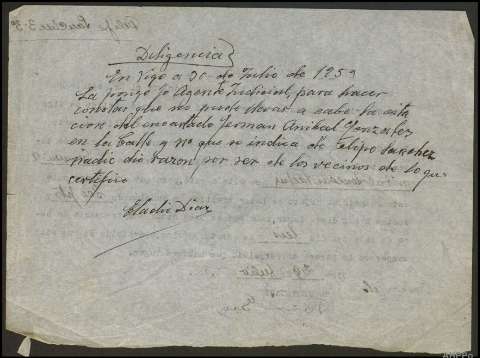 Felipe Sanchez 3-3º
Diligencia
En Vigo a 30 de Julio de 1959
La pongo yo Agente Judicial, para hacer
constar que no pude llevar a cabo la cita
cion del encartado German Anibal Gonzalez
en la Calle y nº que se indica de Felipe Sanchez
nadie dio razon, por ser de los vecinos de lo que
certifico
Eladio Diaz